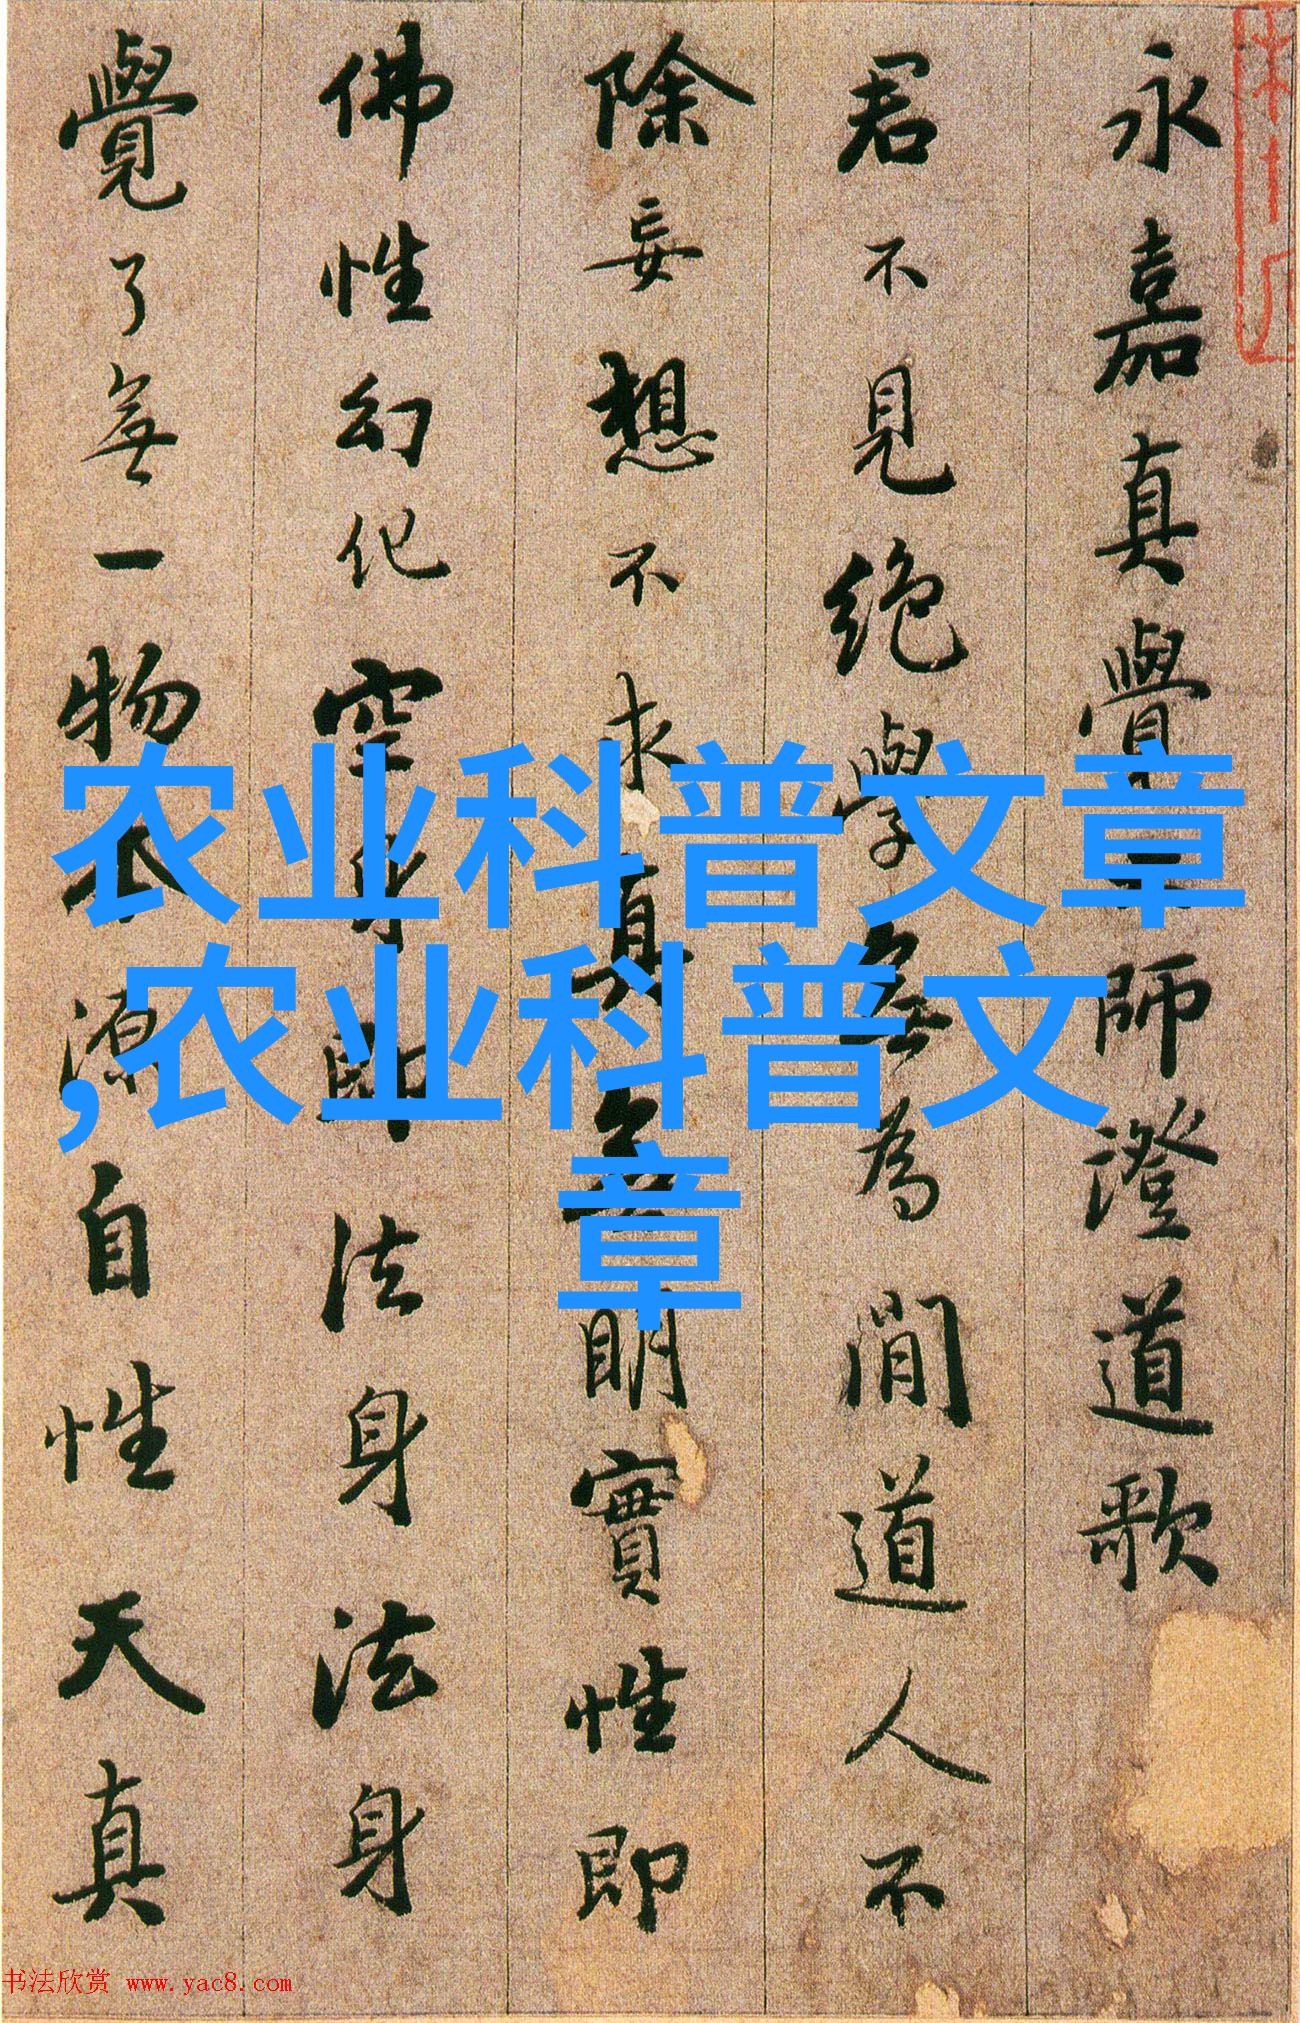 永嘉真覺大師澄道歌
君不見絕學無為閒道人不
除妄想不求真無明實性即
佛性幻化空身即法身法身
覺了無一物本源自性天真
农业科普文章
,农业科普文
章
书法欣赏 www.yac8.com